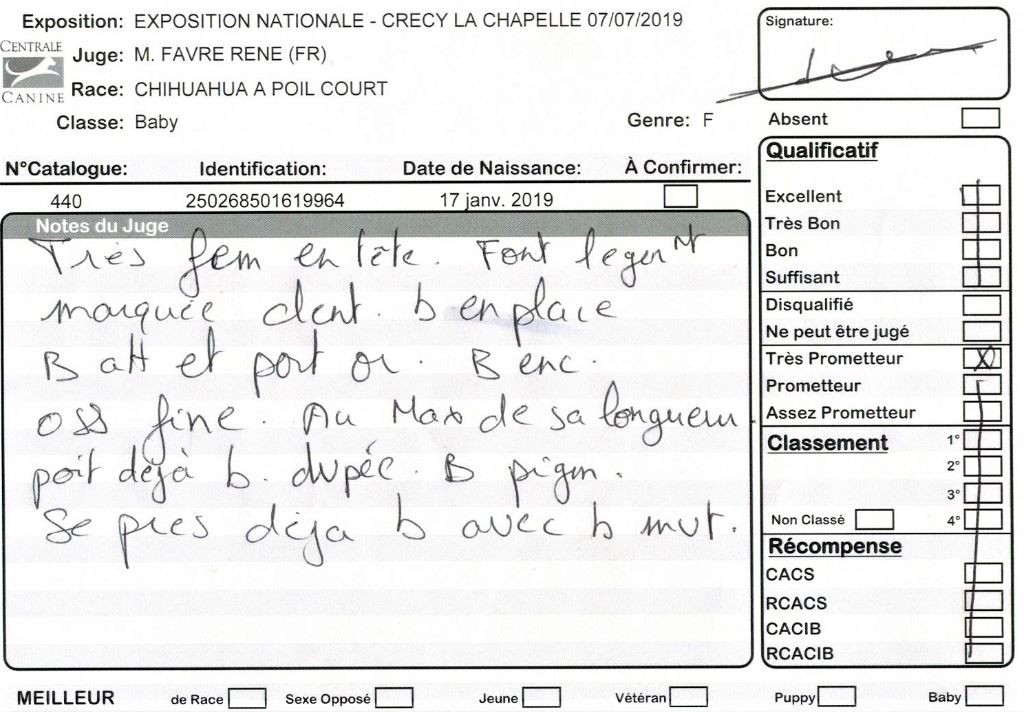 Exposition: EXPOSITION NATIONALE - CRECY LA CHAPELLE 07/07/2019
Signature:
CENTRALE
CANINE
Juge: M. FAVRE RENE (FR)
Race: CHIHUAHUA A POIL COURT
Classe: Baby
Genre: F
Absent
N°Catalogue: Identification: Date de Naissance: À Confirmer:
440 250268501619964 17 janv. 2019
Notes du Juge
Très fem en tête. Font legen nt
marquée dent. b en place
B att et port or. B enc.
oss fine. Au Max de sa longueur
port déjà b. B pigm.
Se pres déja b avec b mvt.
Qualificatif
Excellent
Très Bon
Bon
Suffisant
Disqualifié
Ne peut être jugé
Très Prometteur X
Prometteur
Assez Prometteur
Classement 1°
2°
3°
Non Classé 4°
Récompense
CACS
RCACS
CACIB
RCACIB
MEILLEUR de Race Sexe Opposé Jeune Vétéran Puppy Baby